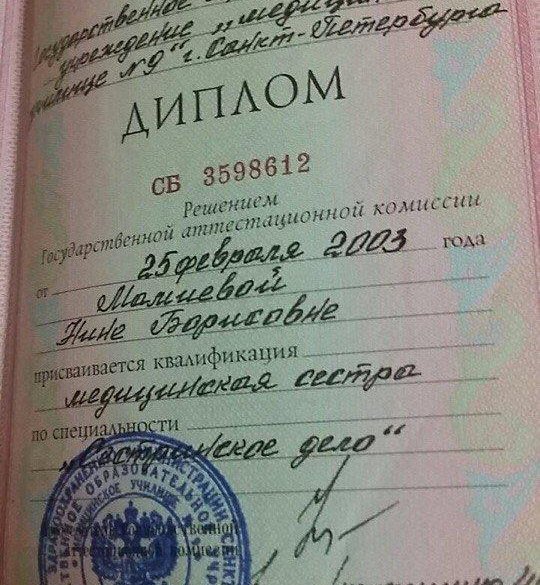 Государственное
учреждение „медицин
училище №9" г. Санкт-Петербурга
ДИПЛОМ
СБ 3598612
Решением
Государственной аттестационной комиссии
от 25 февраля 2003 года
Нине Борисовне
присваивается квалификация
медицинская сестра
по специальности
„Сестринское дело"
аттестационной комиссии